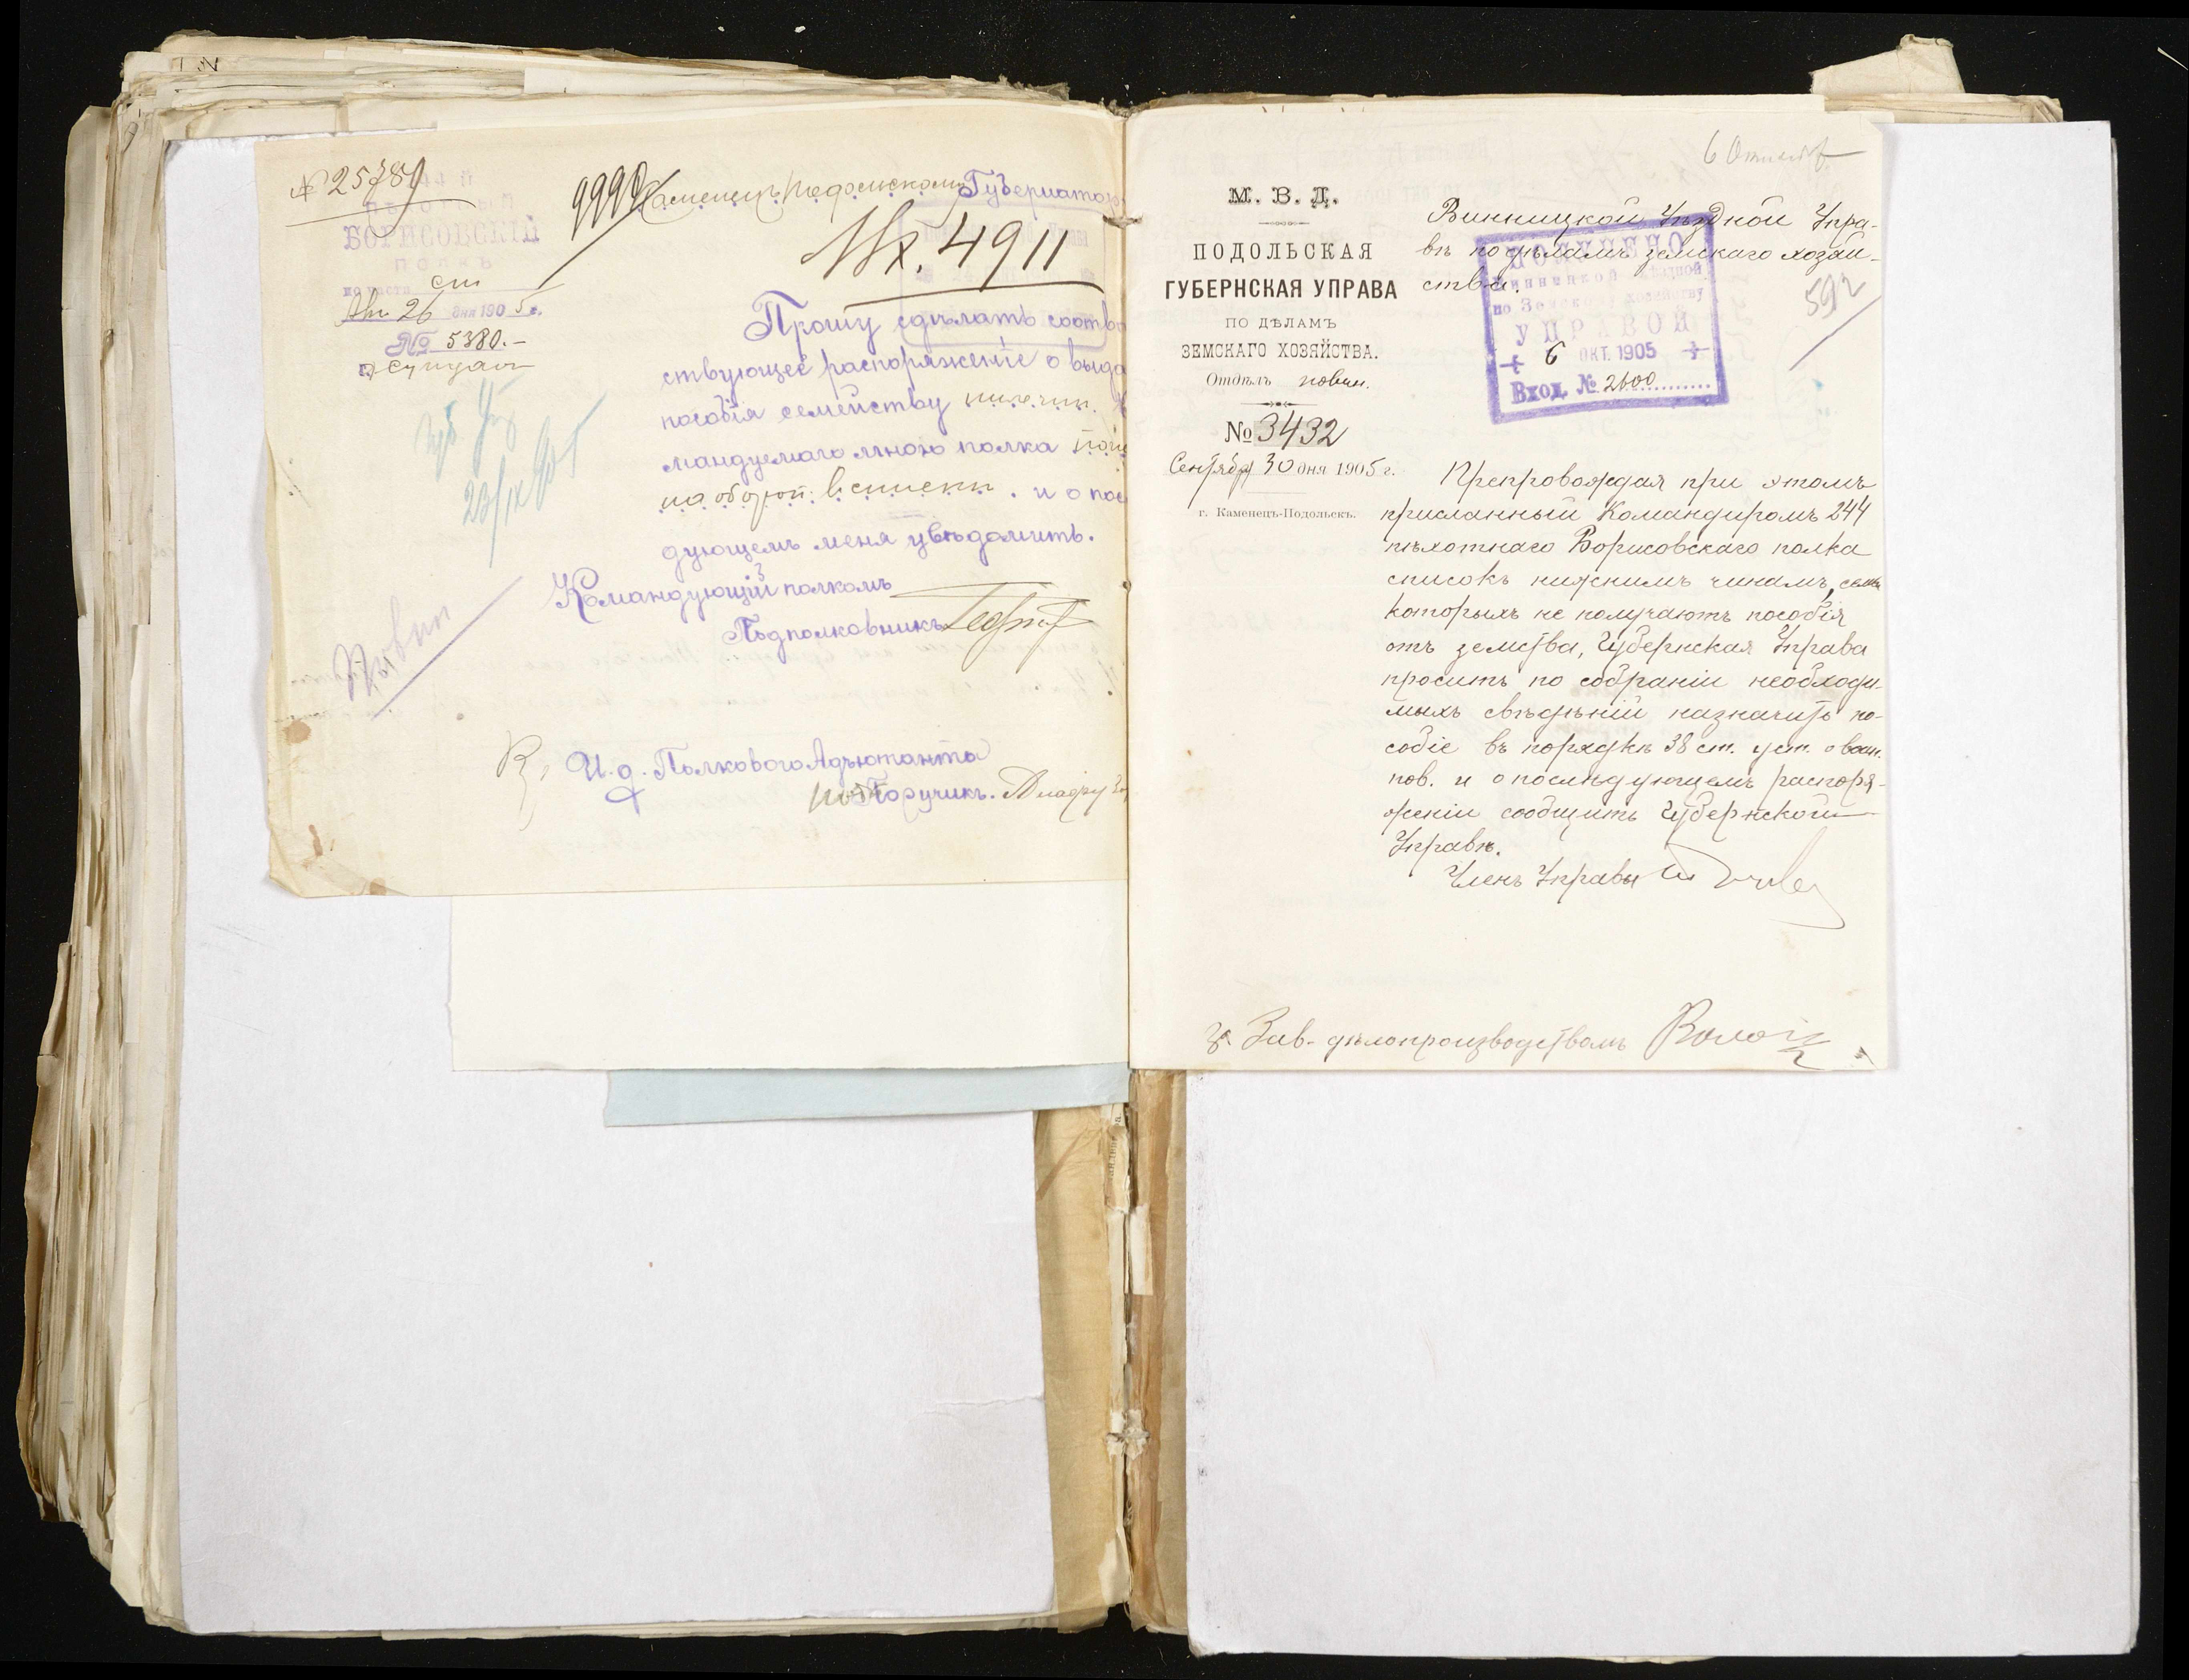 № 25789
244 й
ПѢХОТНЫЙ
БОРИСОВСКІЙ
ПОЛКЪ
по части
Авг 26 дня 1905 г.
№ 5380.-
9990
Каменецъ Подольскому Губернатор
Вх. 4911
Прошу сдѣлать соотвѣ
ствующее распоряженіе о выда
пособія семейству нижнихъ
мандуемаго мною полка
на оборот. в списки. и о пос
дующемъ меня увѣдомить.
Командующій полкомъ
Подполковникъ
И. д. Полкового Адъютанта
Поручикъ.
6 Октября
М. В. Д.
ПОДОЛЬСКАЯ
ГУБЕРНСКАЯ УПРАВА
ПО ДѢЛАМЪ
ЗЕМСКАГО ХОЗЯЙСТВА.
Отдѣлъ повин.
№ 3432
Сентября 30 дня 1905 г.
г. Каменецъ-Подольскъ.
Винницкой Уѣздной Упра-
вѣ по дѣламъ земскаго хозяй-
ства.
592
ПОЛУЧЕНО
Винницкой Уѣздной
по Земскому хозяйству
УПРАВОЙ
6 ОКТ. 1905
Вход. № 2600
Препровождая при этомъ
присланный Командиромъ 244
пѣхотнаго Борисовскаго полка
списокъ нижнимъ чинамъ, семьи
которыхъ не получаютъ пособія
отъ земства, Губернская Управа
проситъ по собраніи необходи-
мыхъ свѣдѣній назначить по-
собіе въ порядкѣ 38 ст. уст. о воин.
пов. и о послѣдующемъ распоря-
женіи сообщить Губернской
Управѣ.
Членъ Управы
Зав. дѣлопроизводствомъ